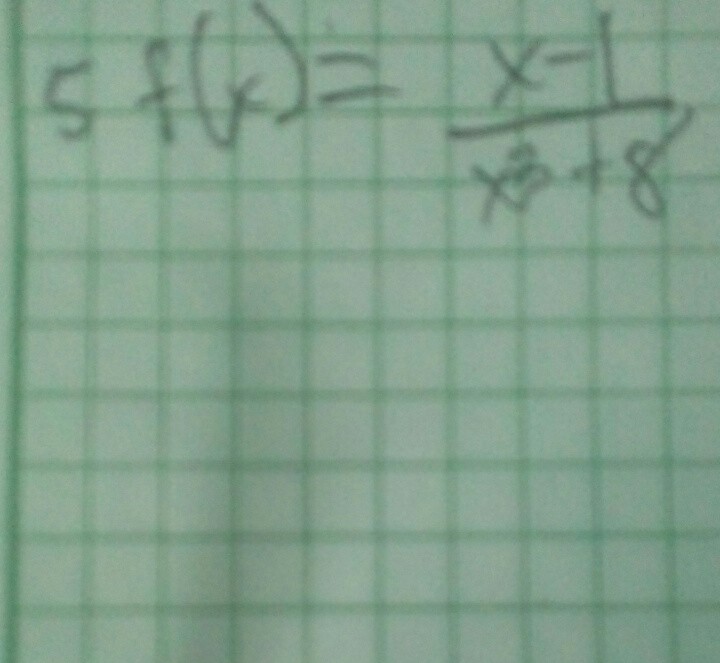 5 f(x) = x-1
x³+8